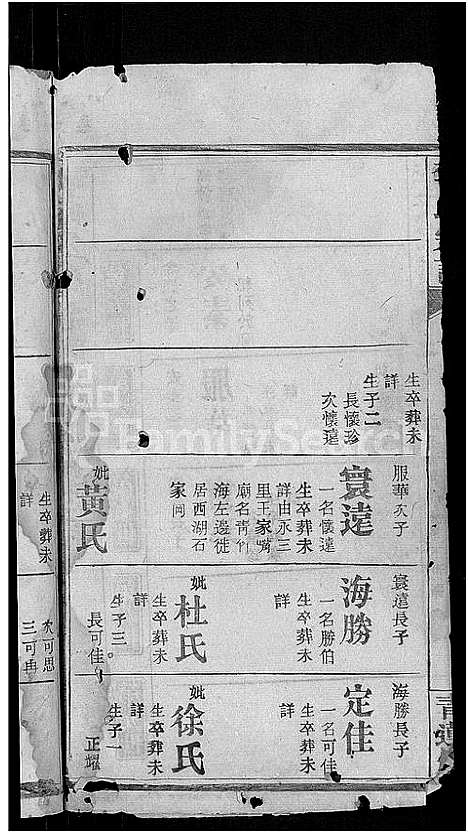 生卒葬未
詳
生子二
長懷珍
次懷遠
服華次子
寰遠
一名懷遠
生卒葬未
詳由永三
里王家嘴
廟名青竹
海左邊徙
居西湖石
家
妣
黃氏
生卒葬未
詳
寰遠長子
海勝
一名勝伯
生卒葬未
詳
妣
杜氏
生卒葬未
詳
生子三
長可佳
次可思
三可冉
海勝長子
定佳
一名可佳
生卒葬未
詳
妣
徐氏
生卒葬未
詳
生子一
正耀
FamilySearch